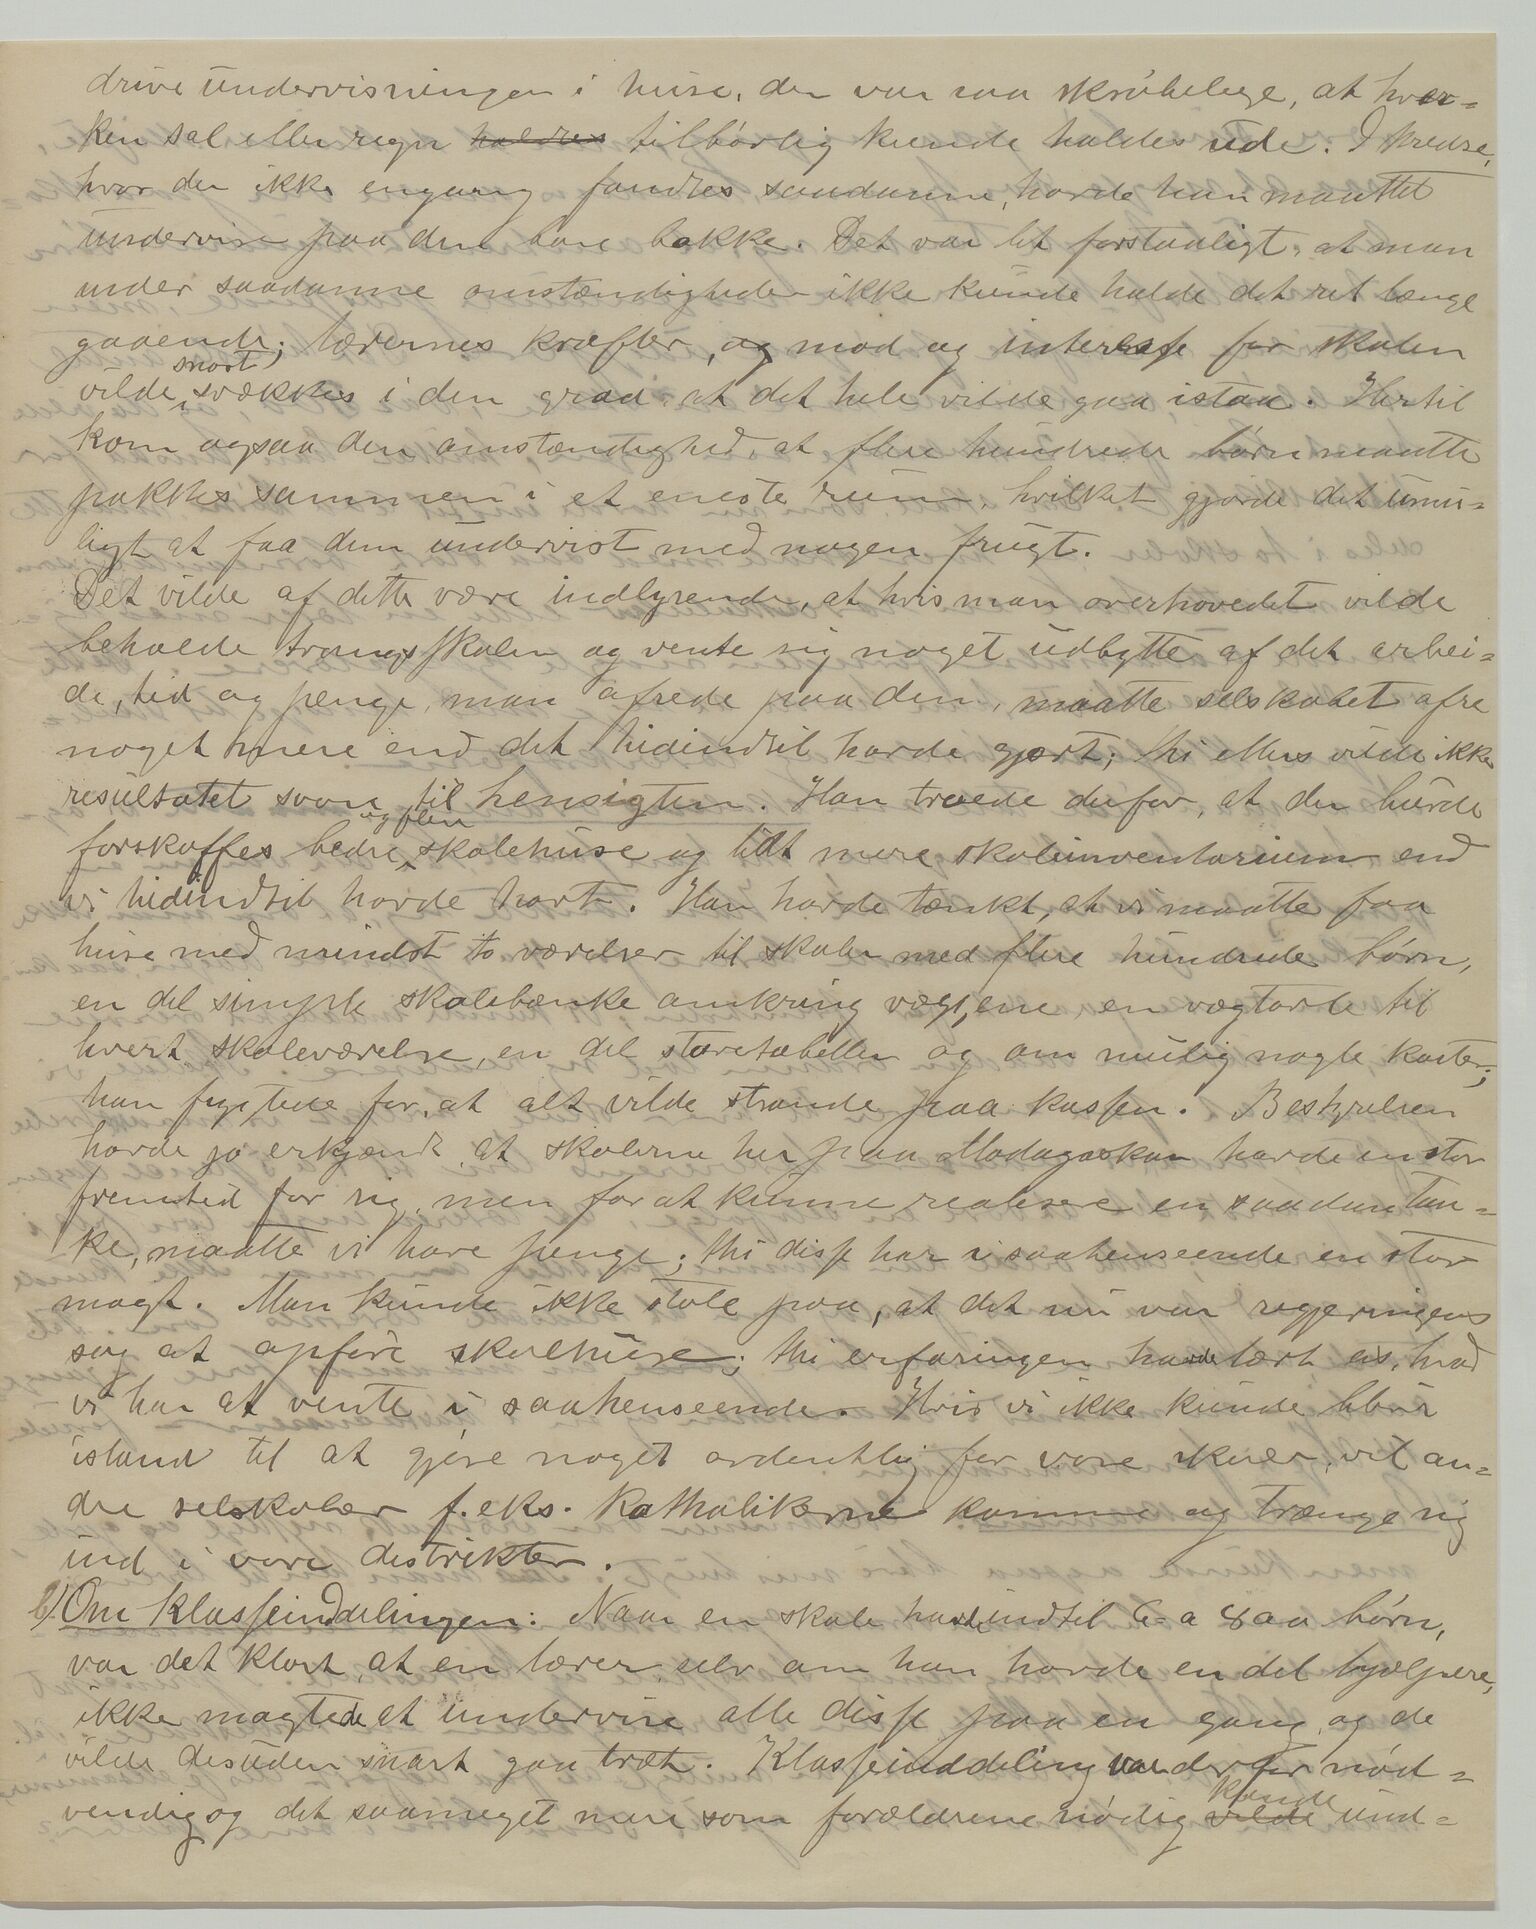 drive undervisningen i huse, der var saa skrøbelige, at hver=
ken sol eller regn holdes tilbørlig kunde holdes ude. I kredse,
hvor der ikke engang fandtes saadanne, havde han maattet
undervise paa den bare bakke. Det var let forstaaligt, at man
under saadanne omstændigheder ikke kunde holde det ret længe
gaaende; lærernes kræfter, og mod og interesse for skolen
vilde snart svækkes i den grad, at det hele vilde gaa istaa. Hertil
kom ogsaa den omstændighed, at flere hundrede børn maatte
pakkes sammen i et eneste rum, hvilket gjorde det umu=
ligt at faa dem undervist med nogen frugt.
Det vilde af dette være indlysende, at hvis man overhovedet vilde
beholde tvangsskolen og vente sig noget udbytte af det arbei=
de, tid og penge, man ofrede paa den, maatte selskabet ofre
noget mere end det hidindtil havde gjort; thi ellers vilde ikke
resultatet svare til hensigten. Han troede derfor, at der burde
forskaffes bedre og flere skolehuse og lidt mere skoleinventarium end
vi hidindtil havde havt. Han havde tænkt, at vi maatte faa
huse med mindst to værelser til skoler med flere hundrede børn,
en del simple skolebænke omkring væggene, en vægtavle til
hvert skoleværelse, en del stavetabeller og om mulig nogle karter;
han frygtede for, at alt vilde strande paa kassen. Bestyrelsen
havde jo erkjendt, at skolerne her paa Madagaskar havde en stor
fremtid for sig, men for at kunne realisere en saadan tan=
ke, maatte vi have penge; thi disse har i saahenseende en stor
magt. Man kunde ikke stole paa, at det nu var regjeringens
sag at opføre skolehuse; thi erfaringen havde lært os, hvad
vi har at vente i saahenseende. Hvis vi ikke kunde blive
istand til at gjøre noget ordentlig for vore skoler, vil an=
dre selskaber f. eks. katholikerne komme og trænge sig
ind i vore distrikter.
b) Om klasseinddelingen: Naar en skole havde indtil 6 a 800 børn,
var det klart, at en lærer, selv om han havde en del hjælpere,
ikke magtede at undervise alle disse paa en gang, og de
vilde desuden snart gaa træt. Klasseinddeling var derfor nød=
vendig og det saameget mere som forældrene nødig vilde kunde und=